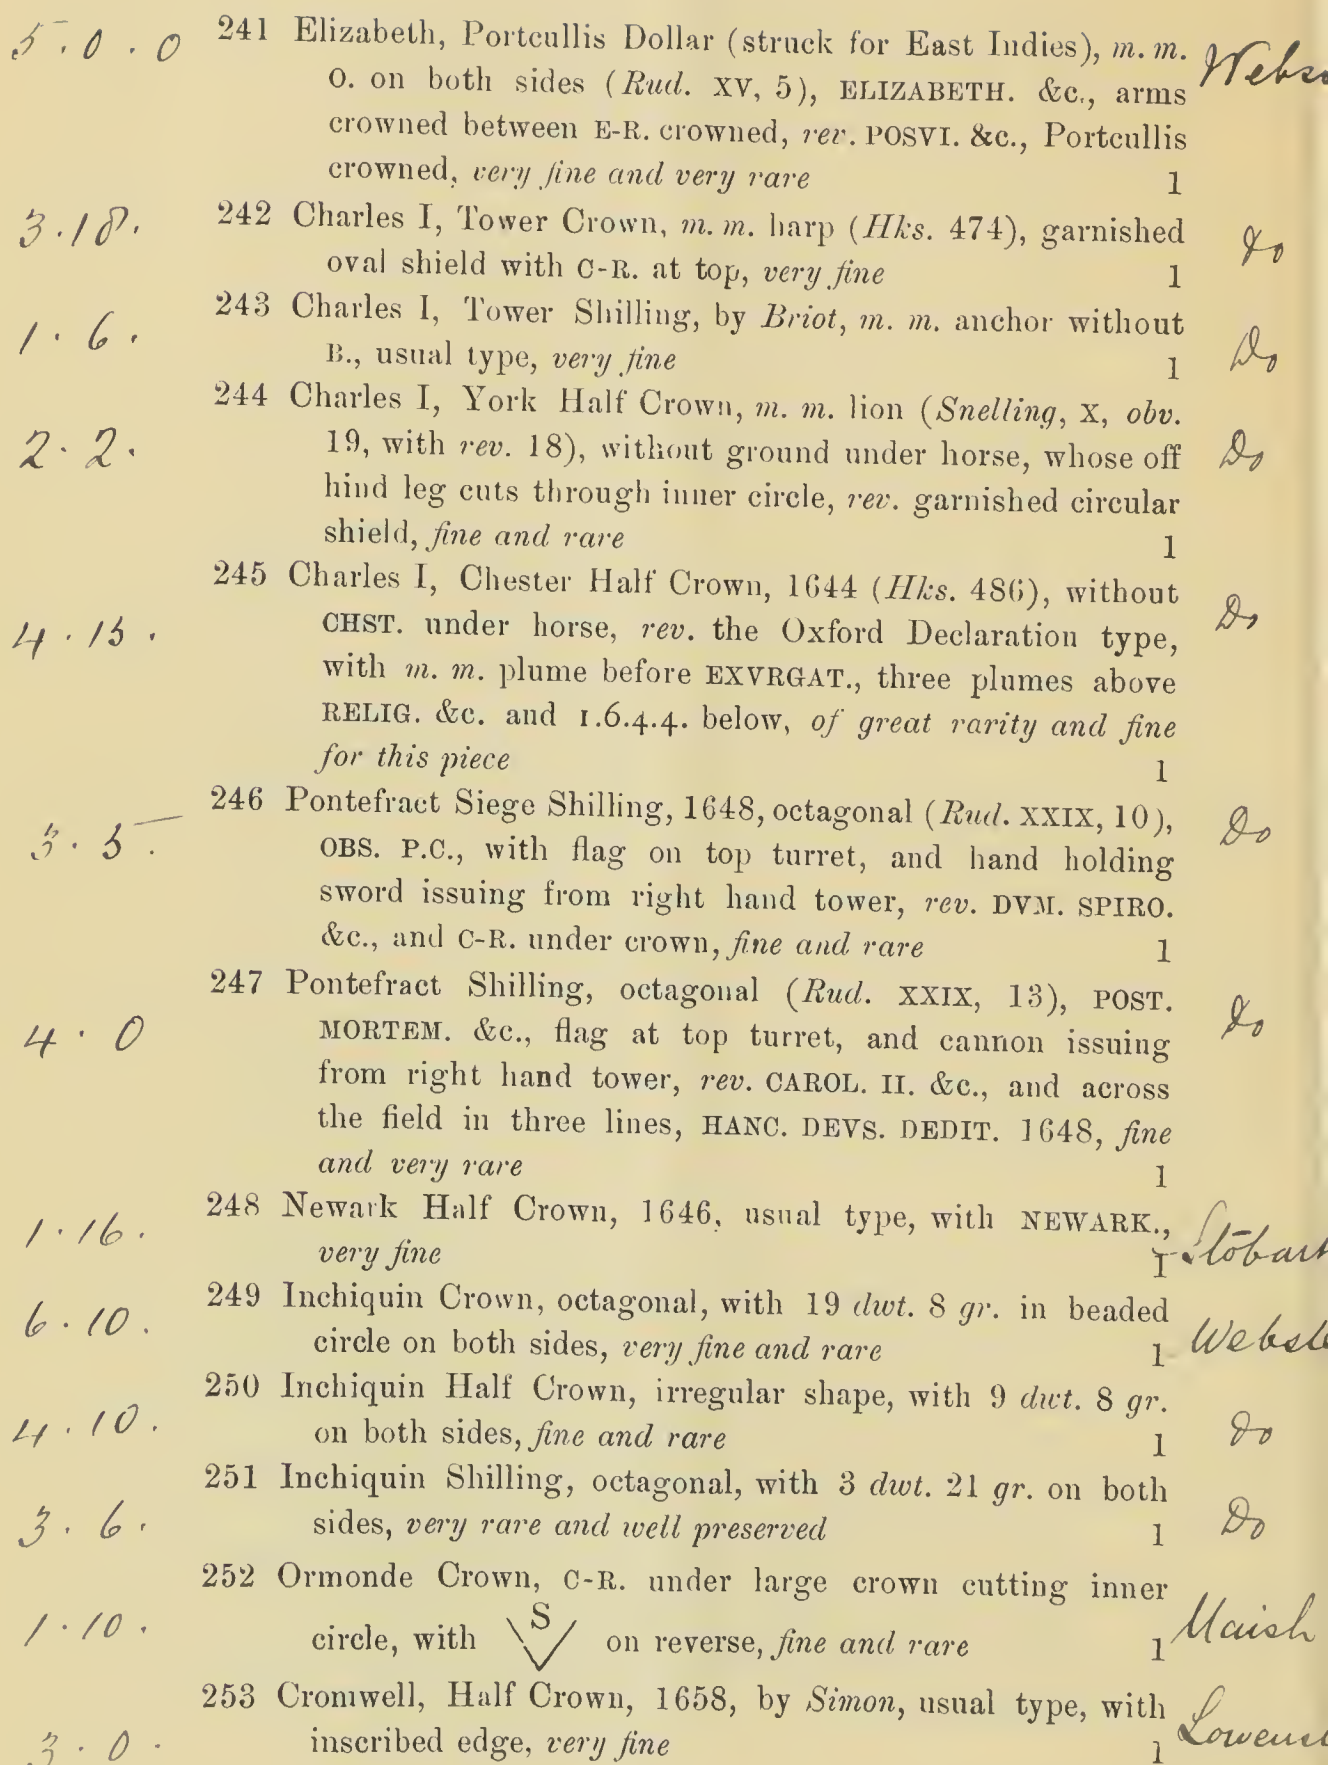 5.0.0 241 Elizabeth, Portcullis Dollar (struck for East Indies), m. m.
O. on both sides (Rud. XV, 5), ELIZABETH. &c., arms
crowned between E-R. crowned, rev. POSVI. &c., Portcullis
crowned, very fine and very rare 1
3.18. 242 Charles I, Tower Crown, m. m. harp (Hks. 474), garnished Do
oval shield with C-R. at top, very fine 1
1.6. 243 Charles I, Tower Shilling, by Briot, m. m. anchor without Do
B., usual type, very fine 1
244 Charles I, York Half Crown, m. m. lion (Snelling, X, obv.
2.2. 19, with rev. 18), without ground under horse, whose off Do
hind leg cuts through inner circle, rev. garnished circular
shield, fine and rare 1
245 Charles I, Chester Half Crown, 1644 (Hks. 486), without
4.15. CHST. under horse, rev. the Oxford Declaration type, Do
with m. m. plume before EXVRGAT., three plumes above
RELIG. &c. and 1.6.4.4. below, of great rarity and fine
for this piece 1
246 Pontefract Siege Shilling, 1648, octagonal (Rud. XXIX, 10), Do
3.5. OBS. P.C., with flag on top turret, and hand holding
sword issuing from right hand tower, rev. DVM. SPIRO.
&c., and C-R. under crown, fine and rare 1
247 Pontefract Shilling, octagonal (Rud. XXIX, 13), POST.
4.0 MORTEM. &c., flag at top turret, and cannon issuing Do
from right hand tower, rev. CAROL. II. &c., and across
the field in three lines, HANC. DEVS. DEDIT. 1648, fine
and very rare 1
1.16. 248 Newark Half Crown, 1646, usual type, with NEWARK., Stobart
very fine 1
6.10. 249 Inchiquin Crown, octagonal, with 19 dwt. 8 gr. in beaded
circle on both sides, very fine and rare 1
250 Inchiquin Half Crown, irregular shape, with 9 dwt. 8 gr.
4.10. on both sides, fine and rare 1 Do
251 Inchiquin Shilling, octagonal, with 3 dwt. 21 gr. on both
3.6. sides, very rare and well preserved 1 Do
252 Ormonde Crown, C-R. under large crown cutting inner
1.10. circle, with S V on reverse, fine and rare 1
253 Cromwell, Half Crown, 1658, by Simon, usual type, with
3.0. inscribed edge, very fine 1